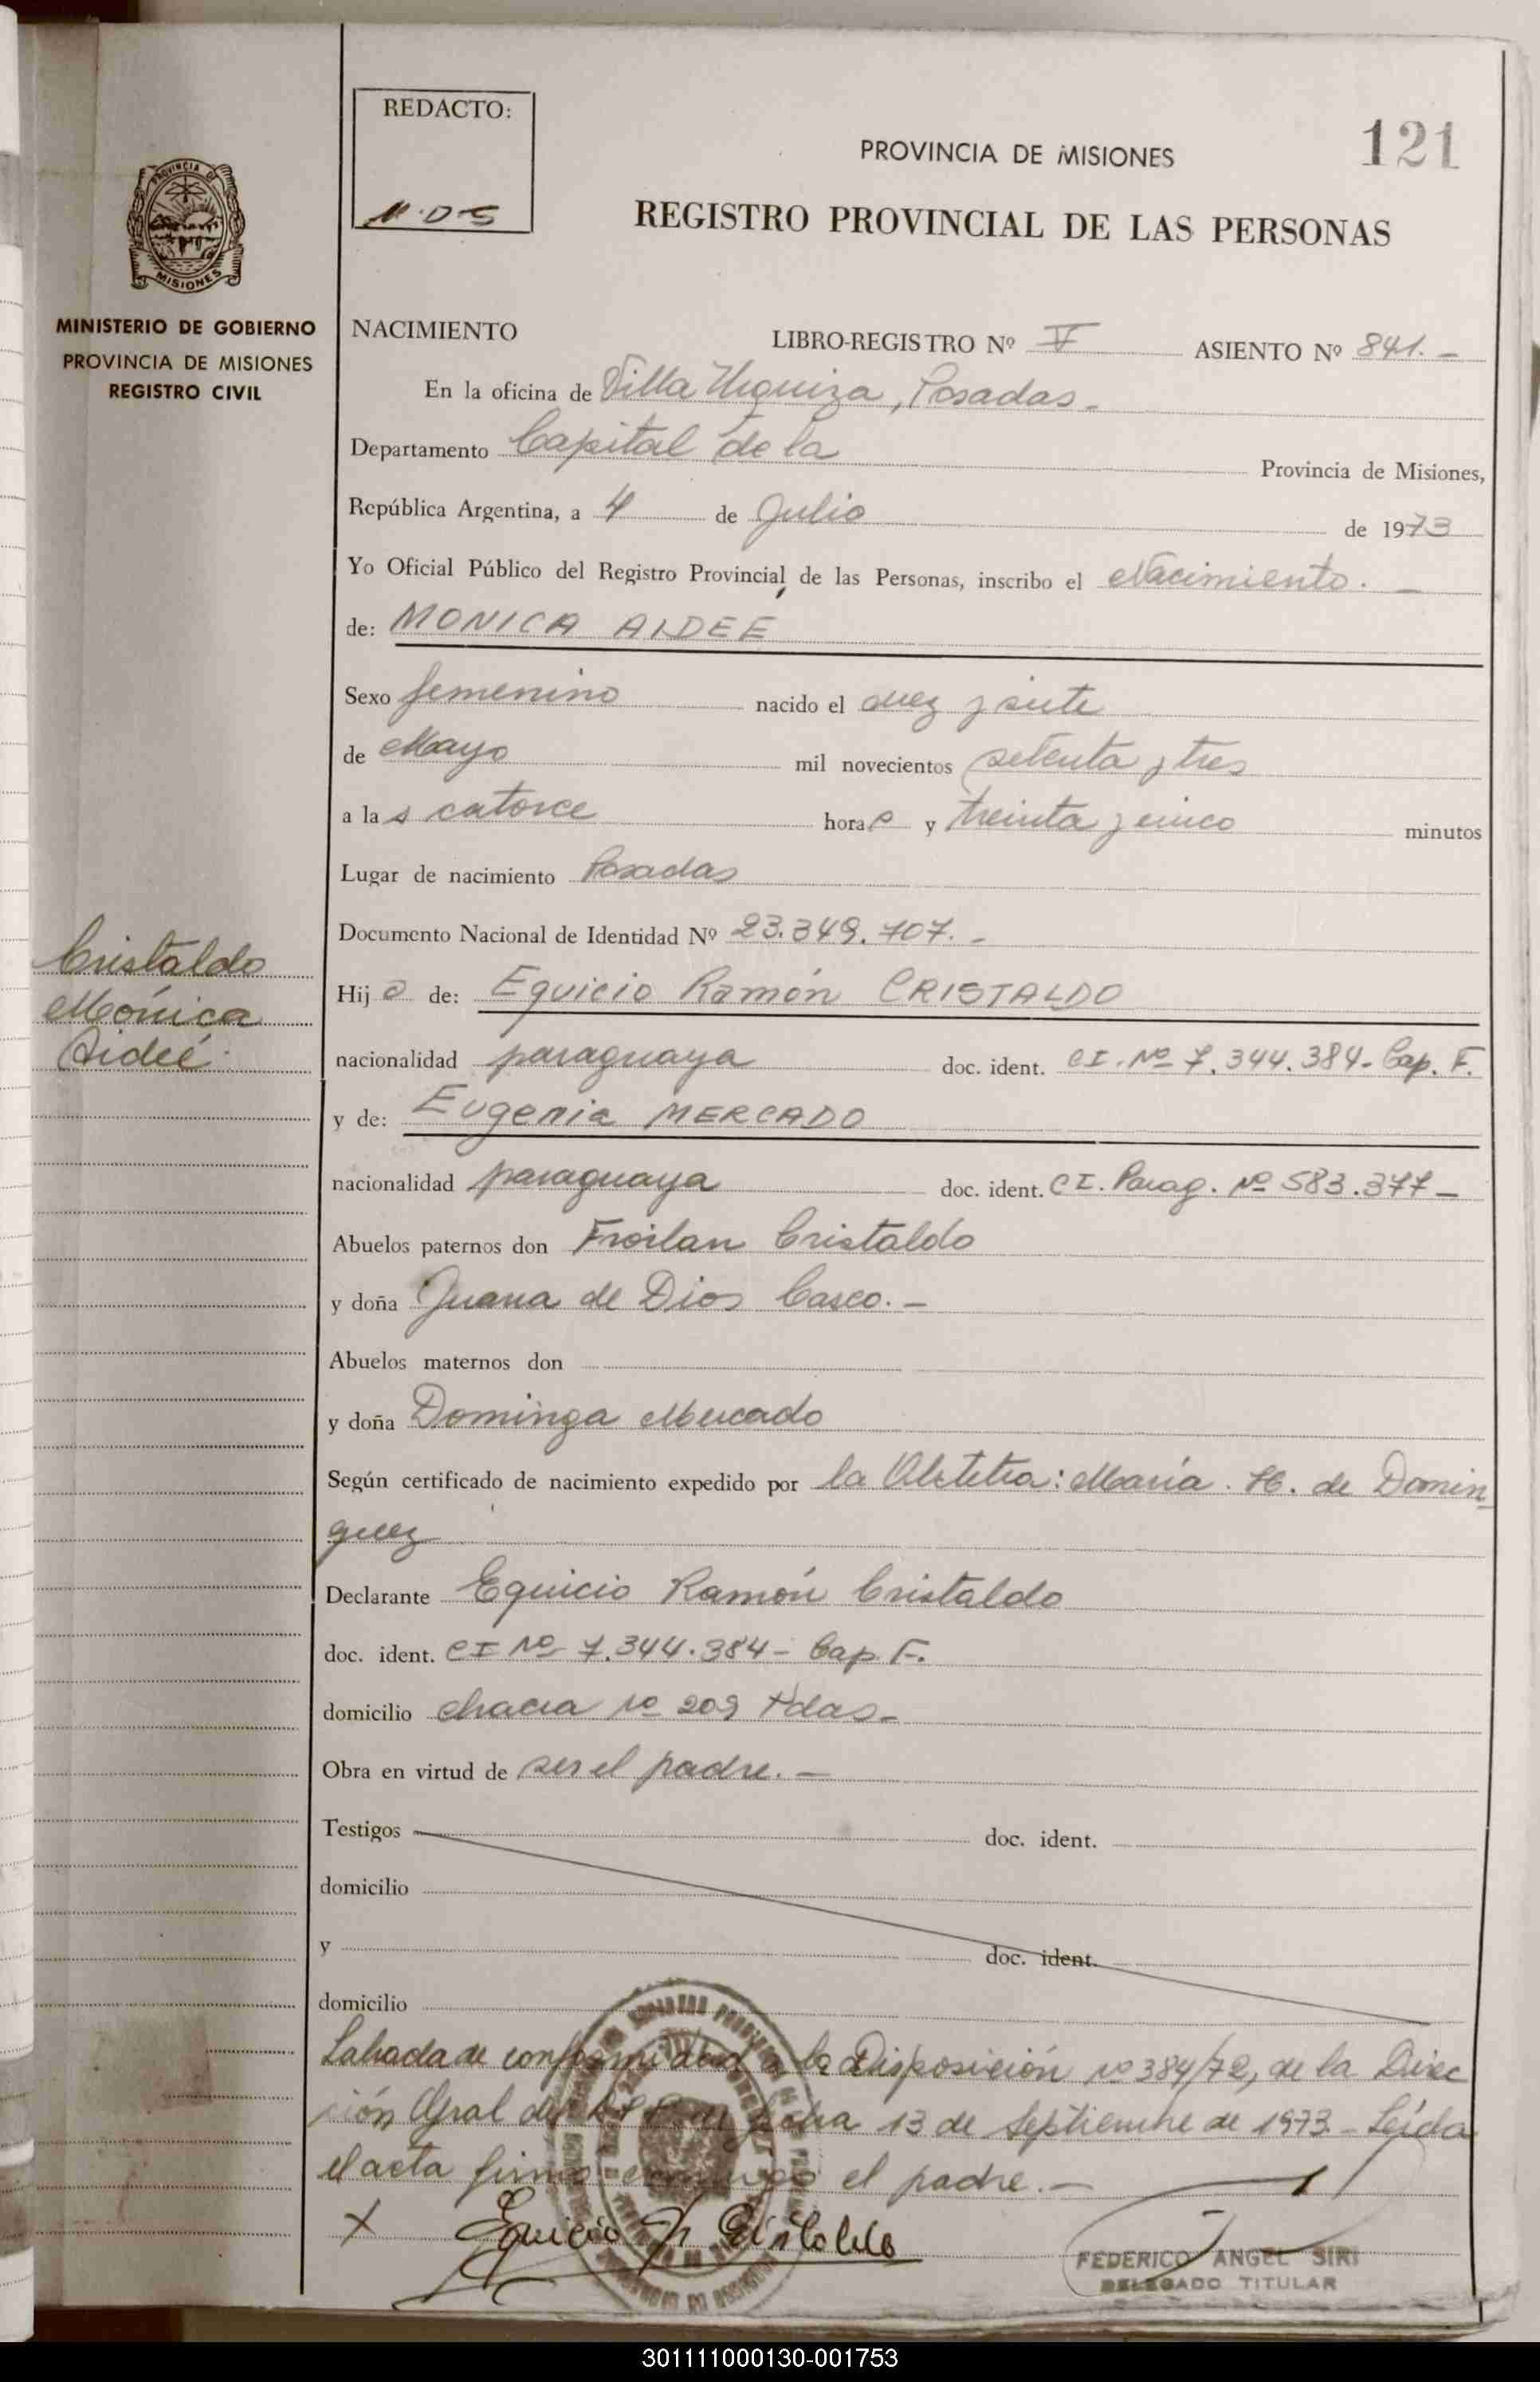 REDACTO:
PROVINCIA DE MISIONES
121
REGISTRO PROVINCIAL DE LAS PERSONAS
PROVINCIA DE
MISIONES
MINISTERIO DE GOBIERNO
PROVINCIA DE MISIONES
REGISTRO CIVIL
NACIMIENTO LIBRO-REGISTRO Nº V ASIENTO Nº 841.-
En la oficina de Villa Urquiza, Posadas-
Departamento Capital de la Provincia de Misiones,
República Argentina, a 4 de Julio de 1973
Yo Oficial Público del Registro Provincial de las Personas, inscribo el Nacimiento.-
de: MONICA AIDEÉ
Sexo femenino nacido el diez y siete
de Mayo mil novecientos setenta y tres
a la s catorce hora s y treinta y cinco minutos
Lugar de nacimiento Posadas
Documento Nacional de Identidad Nº 23.349.707.-
Cristaldo
Mónica
Aideé.
Hij a de: Equicio Ramón CRISTALDO
nacionalidad paraguaya doc. ident. CI. Nº 7.344.384- Cap. F.
y de: Eugenia MERCADO
nacionalidad paraguaya doc. ident. CI. Parag. Nº 583.377-
Abuelos paternos don Froilan Cristaldo
y doña Juana de Dios Casco.-
Abuelos maternos don
y doña Dominga Mercado
Según certificado de nacimiento expedido por la Obstetra: María. H. de Domin
guez
Declarante Equicio Ramón Cristaldo
doc. ident. CI Nº 7.344.384- Cap. F.
domicilio chacra nº 209 Pdas-
Obra en virtud de ser el padre.-
Testigos doc. ident.
domicilio
y doc. ident.
domicilio
Labrada de conformidad a la Disposición nº 384/72, de la Direc
ción Gral del fecha 13 de Septiembre de 1973.- Leída
el acta firma conmigo el padre.-
X Equicio R Cristaldo
FEDERICO ANGEL SIRI
DELEGADO TITULAR
301111000130-001753